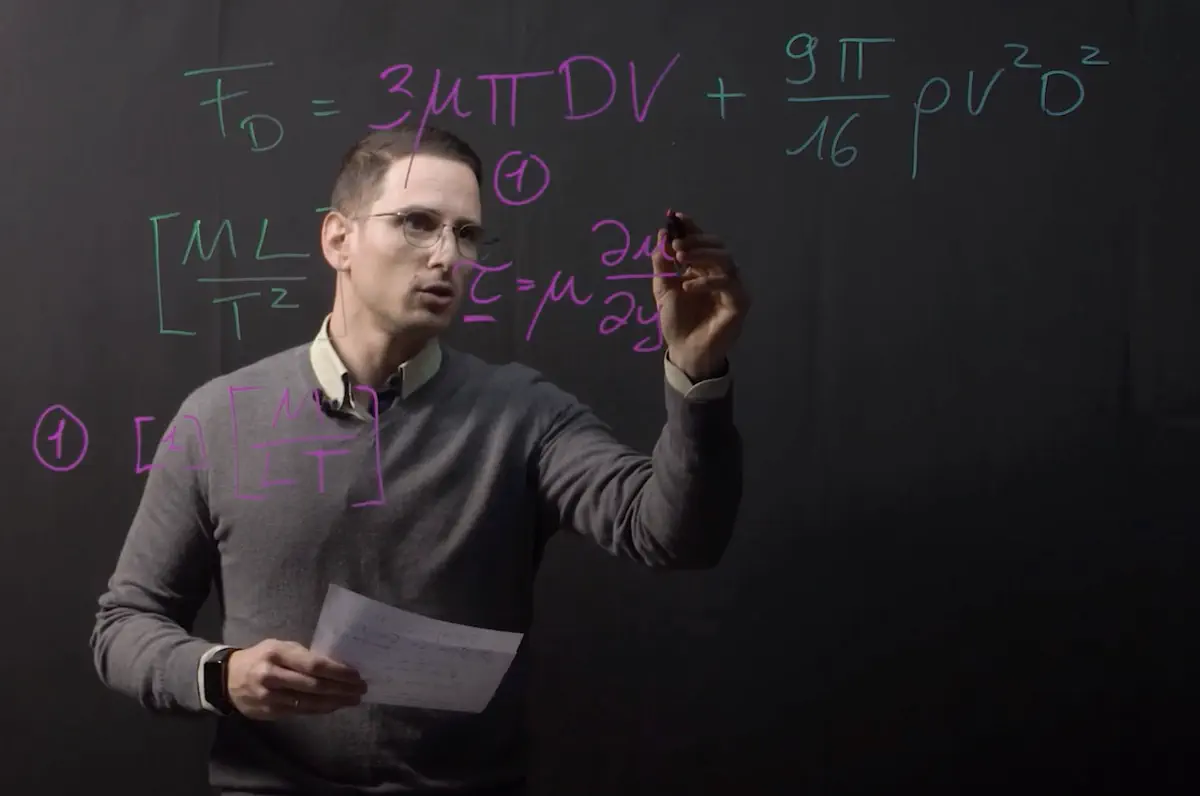 F_D = 3μπDV + 9π/16 ρV²D²
①
[ML/T² τ = μ ∂u/∂y
① [1] [M/LT]